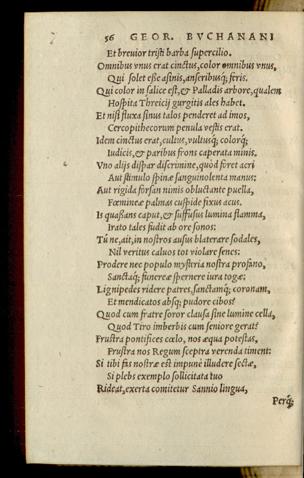 56 GEOR. BVCHANANI
Et breuior tristi barba supercilio.
Omnibus vnus erat cinctus, color omnibus vnus,
Qui solet esse asinis, anseribusq; feris.
Qui color in salice est, & Palladis arbore, qualem
Hospita Threicij gurgitis ales habet.
Et nisi fluxa sinus talos penderet ad imos,
Cercopithecorum penula vestis erat.
Idem cinctus erat, cultus, vultusq; colorq;
Iudicis, & paribus frons caperata minis.
Vno alijs dispar discrimine, quòd foret acri
Aut stimulo spinæ sanguinolenta manus:
Aut rigida forsan nimis obluctante puella,
Fœmineæ palmas cuspide fixus acus.
Is quassans caput, & suffusus lumina flamma,
Irato tales fudit ab ore sonos:
Tú ne, ait, in nostros ausus blaterare sodales,
Nil veritus caluos tot violare senes:
Prodere nec populo mysteria nostra profano,
Sanctaq; funereæ spernere iura togæ:
Lignipedes ridere patres, sanctamq; coronam,
Et mendicatos absq; pudore cibos?
Quod cum fratre soror clausa sine lumine cella,
Quod Tiro imberbis cum seniore gerat?
Frustra pontifices cœlo, nos æqua potestas,
Frustra nos Regum sceptra verenda timent:
Si tibi fas nostræ est impunè illudere sectæ,
Si plebs exemplo sollicitata tuo
Rideat, exerta comitetur Sannio lingua,
Perq;